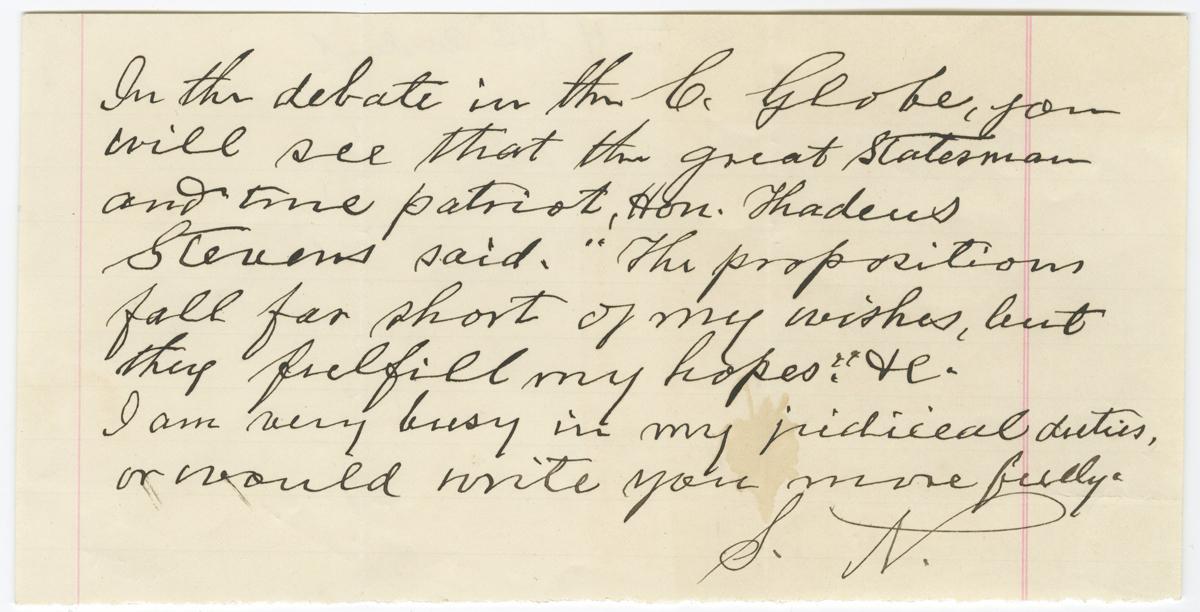 In the debate in the C. Globe, you
will see that the great Statesman
and true patriot, Hon. Thadeus
Stevens said. "The propositions
fall far short of my wishes, but
they fulfill my hopes". &c.
I am very busy in my judicial duties,
or would write you more fully.
S. N.